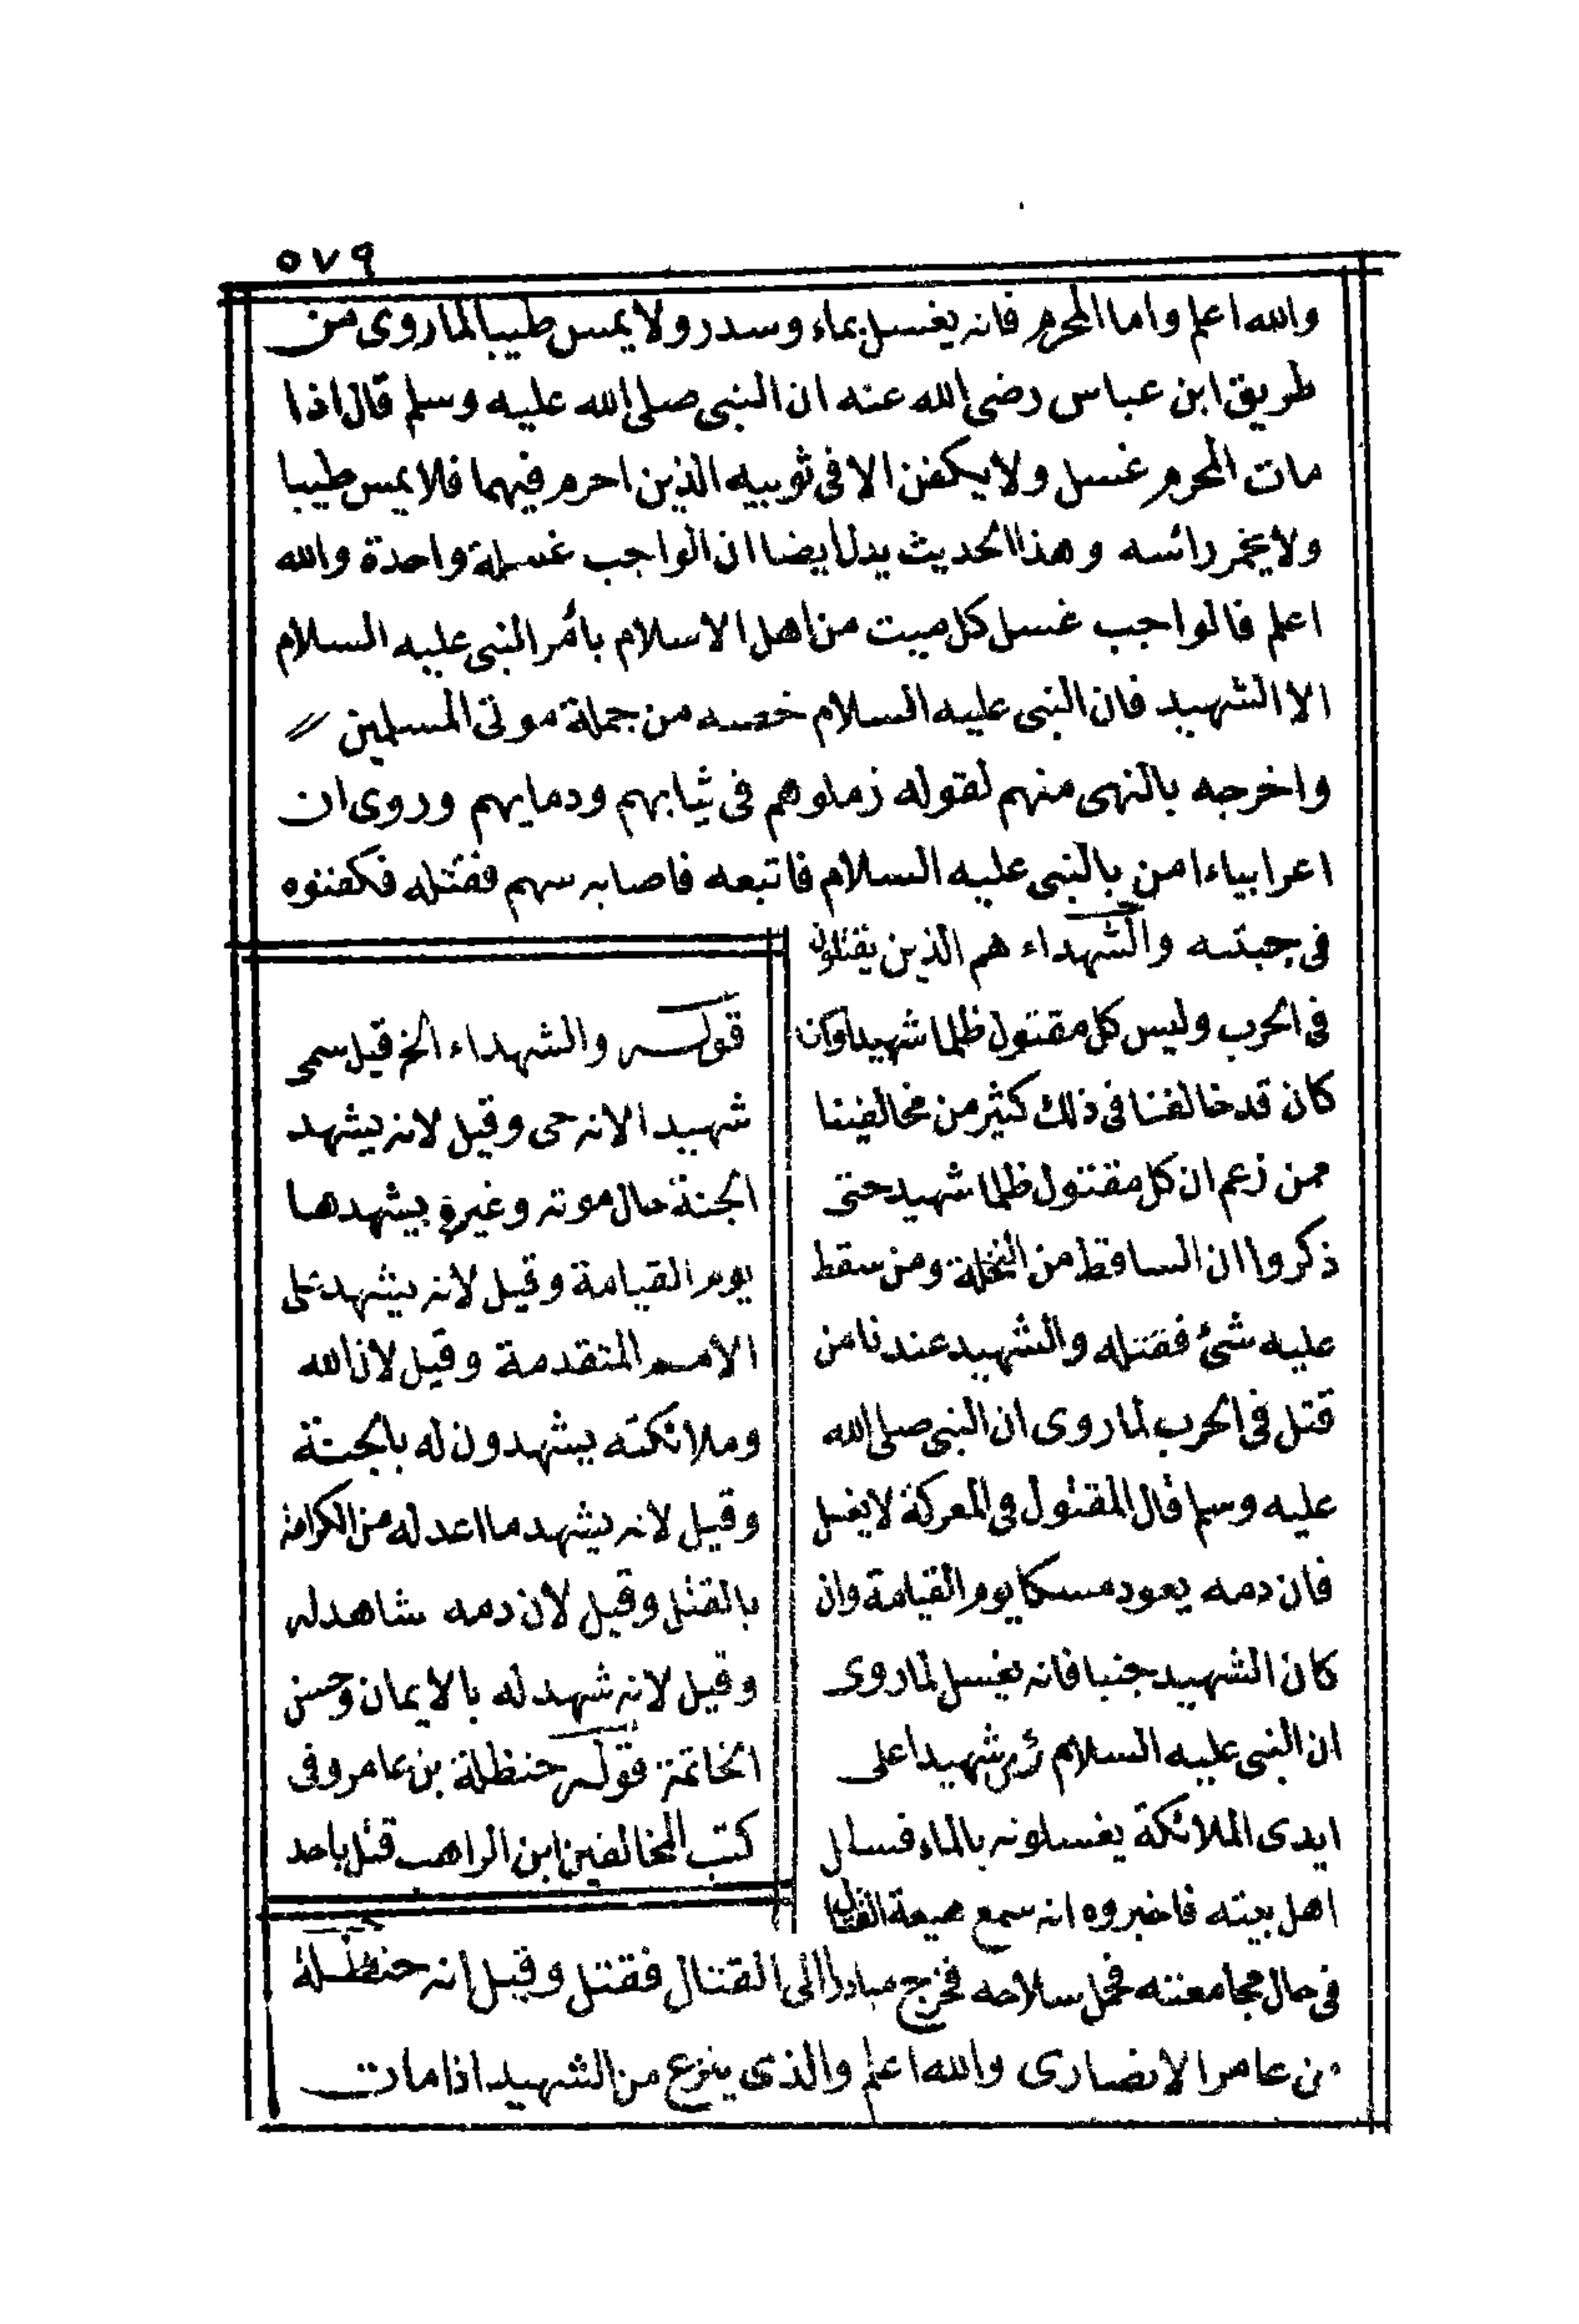 ٥٧٩
والله اعلم واما المحرم فانه يغسل بماء وسدر ولا يمس طيبا لما روى من
طريق ابن عباس رضى الله عنه ان النبى صلى الله عليه وسلم قال اذا
مات المحرم غسل ولا يكفن الا فى ثوبيه الذين احرم فيهما فلا يمس طيبا
ولا يخمر رائسه وهذا الحديث يدل ايضا ان الواجب غسلة واحدة والله
اعلم فالواجب غسل كل ميت من اهل الاسلام بأمر النبى عليه السلام
الا الشهيد فان النبى عليه السلام خصه من جملة موتى المسلمين
واخرجه بالنهى منهم لقوله زملوهم فى ثيابهم ودمايهم وروى ان
اعرابياء امن بالنبى عليه السلام فاتبعه فاصابه سهم فقتله فكفنوه
فى جبته والشهداء هم الذين يقتلون
فى الحرب وليس كل مقتول ظلما شهيدا وان
كان قد خالفنا فى ذلك كثير من مخالفينا
ممن زعم ان كل مقتول ظلما شهيد حتى
ذكروا ان الساقط من النخلة ومن سقط
عليه شئ فقتله والشهيد عندنا من
قتل فى الحرب لما روى ان النبى صلى الله
عليه وسلم قال المقتول فى المعركة لا يغسل
فان دمه يعود مسكا يوم القيامة وان
كان الشهيد جنبا فانه يغسل لما روى
ان النبى عليه السلام رئى شهيدا على
ايدى الملائكة يغسلونه بالماء فسال
اهل بيته فاخبروه انه سمع هيعة القتال
فى حال مجامعته فحمل سلاحه فخرج مبادرا الى القتال فقتل وقيل انه حنظلة
بن عامر الانصارى والله اعلم والذى ينزع من الشهيد اذا مات
قوله والشهداء الخ قيل سمى
شهيدا لانه حى وقيل لانه يشهد
الجنة حال موته وغيره يشهدها
يوم القيامة وقيل لانه يشهد على
الامم المتقدمة وقيل لان الله
وملائكته يشهدون له بالجنة
وقيل لانه يشهد ما اعد له من الكرامة
بالقتل وقيل لان دمه شاهد له
وقيل لانه شهد له بالايمان وحسن
الخاتمة قوله حنظلة بن عامر وفى
كتب المخالفين ابن الراهب قتل باحد